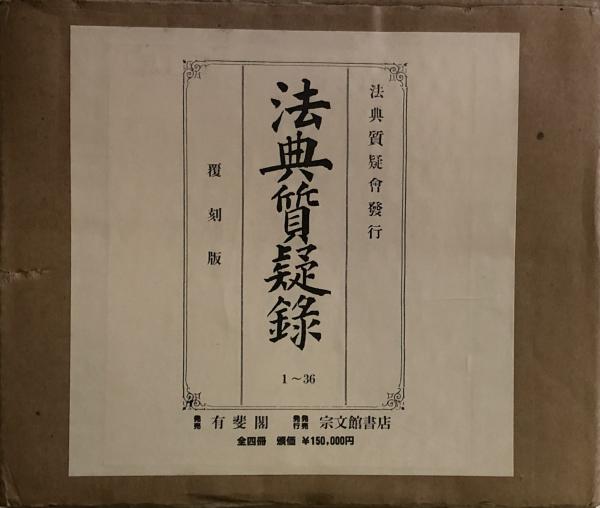 法典質疑會發行
法典質疑錄
1～36
覆刻版
発売 有斐閣 発行 発売 宗文館書店
全四冊 頒価 ¥150,000円